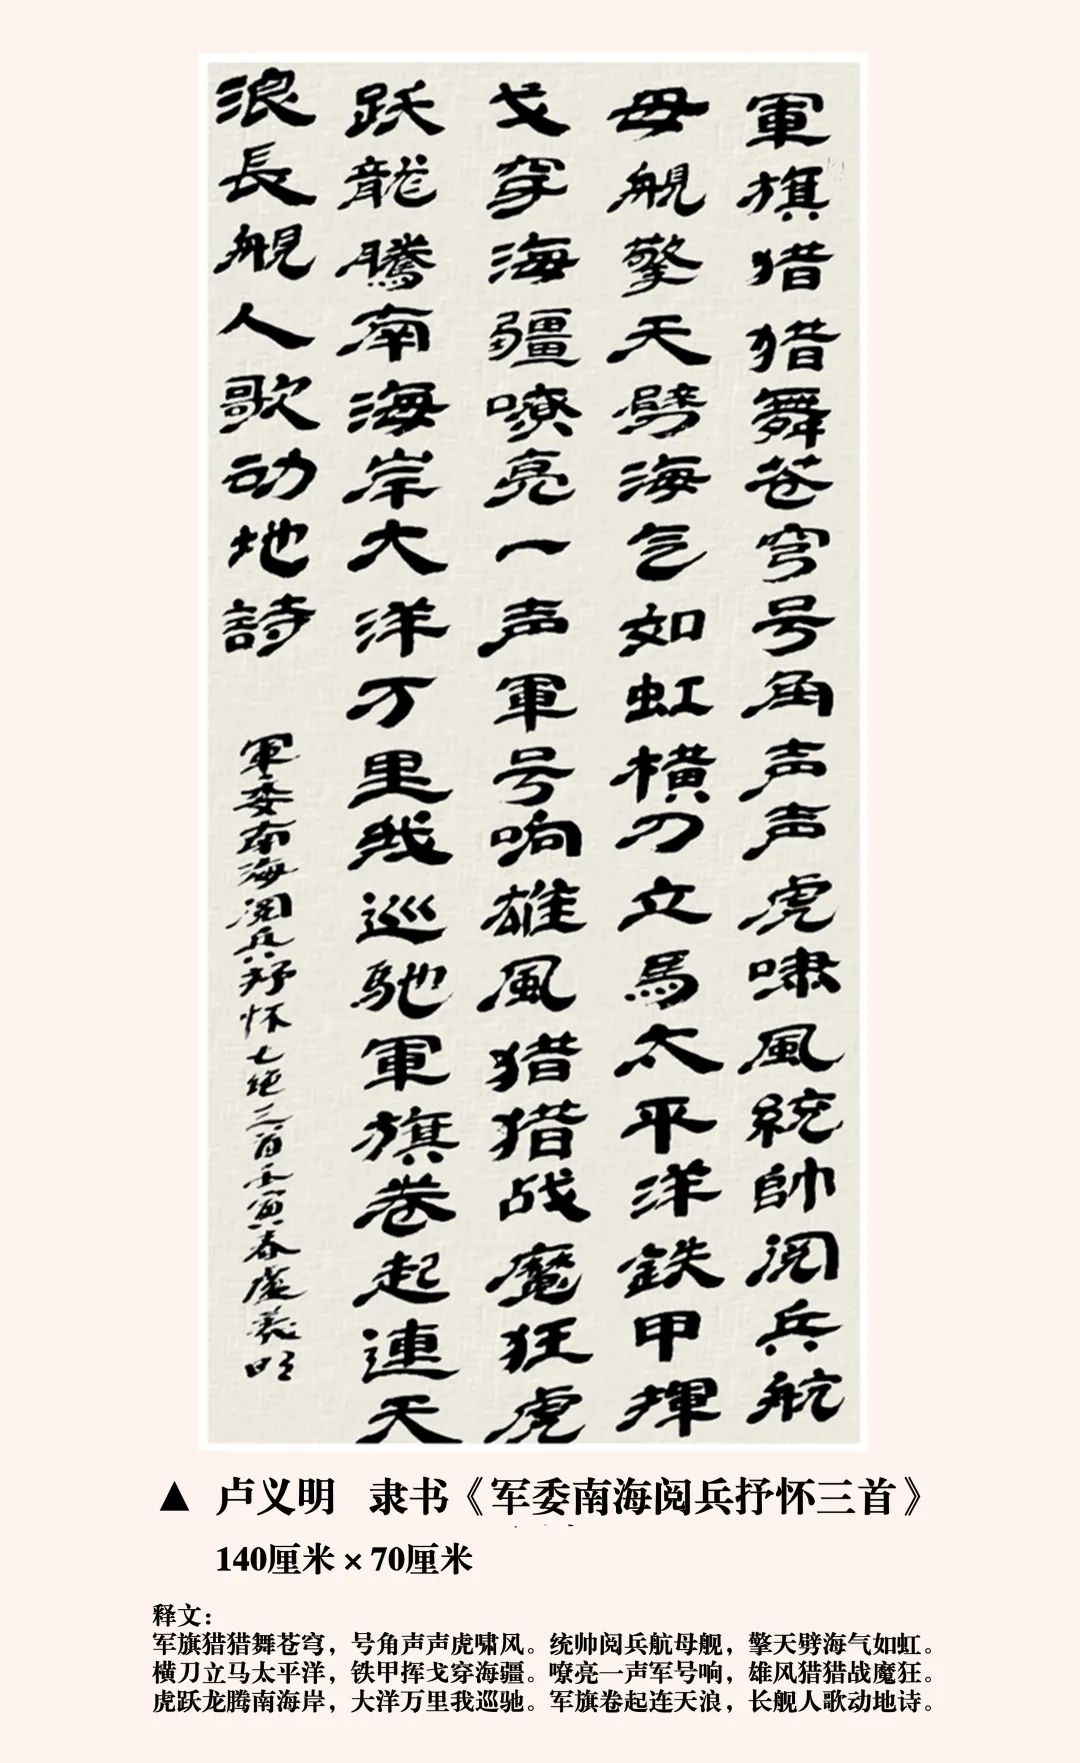 軍旗猎猎舞苍穹号角声声虎啸風統帥阅兵航
母舰擎天劈海气如虹横刀立馬太平洋鉄甲揮
戈穿海疆嘹亮一声軍号响雄風猎猎战魔狂虎
跃龍騰南海岸大洋万里我巡馳軍旗卷起連天
浪長舰人歌动地詩
軍委南海阅兵抒怀七绝三首壬寅春盧義明
▲ 卢义明 隶书《军委南海阅兵抒怀三首》
140厘米 × 70厘米
释文：
军旗猎猎舞苍穹，号角声声虎啸风。统帅阅兵航母舰，擎天劈海气如虹。
横刀立马太平洋，铁甲挥戈穿海疆。嘹亮一声军号响，雄风猎猎战魔狂。
虎跃龙腾南海岸，大洋万里我巡驰。军旗卷起连天浪，长舰人歌动地诗。